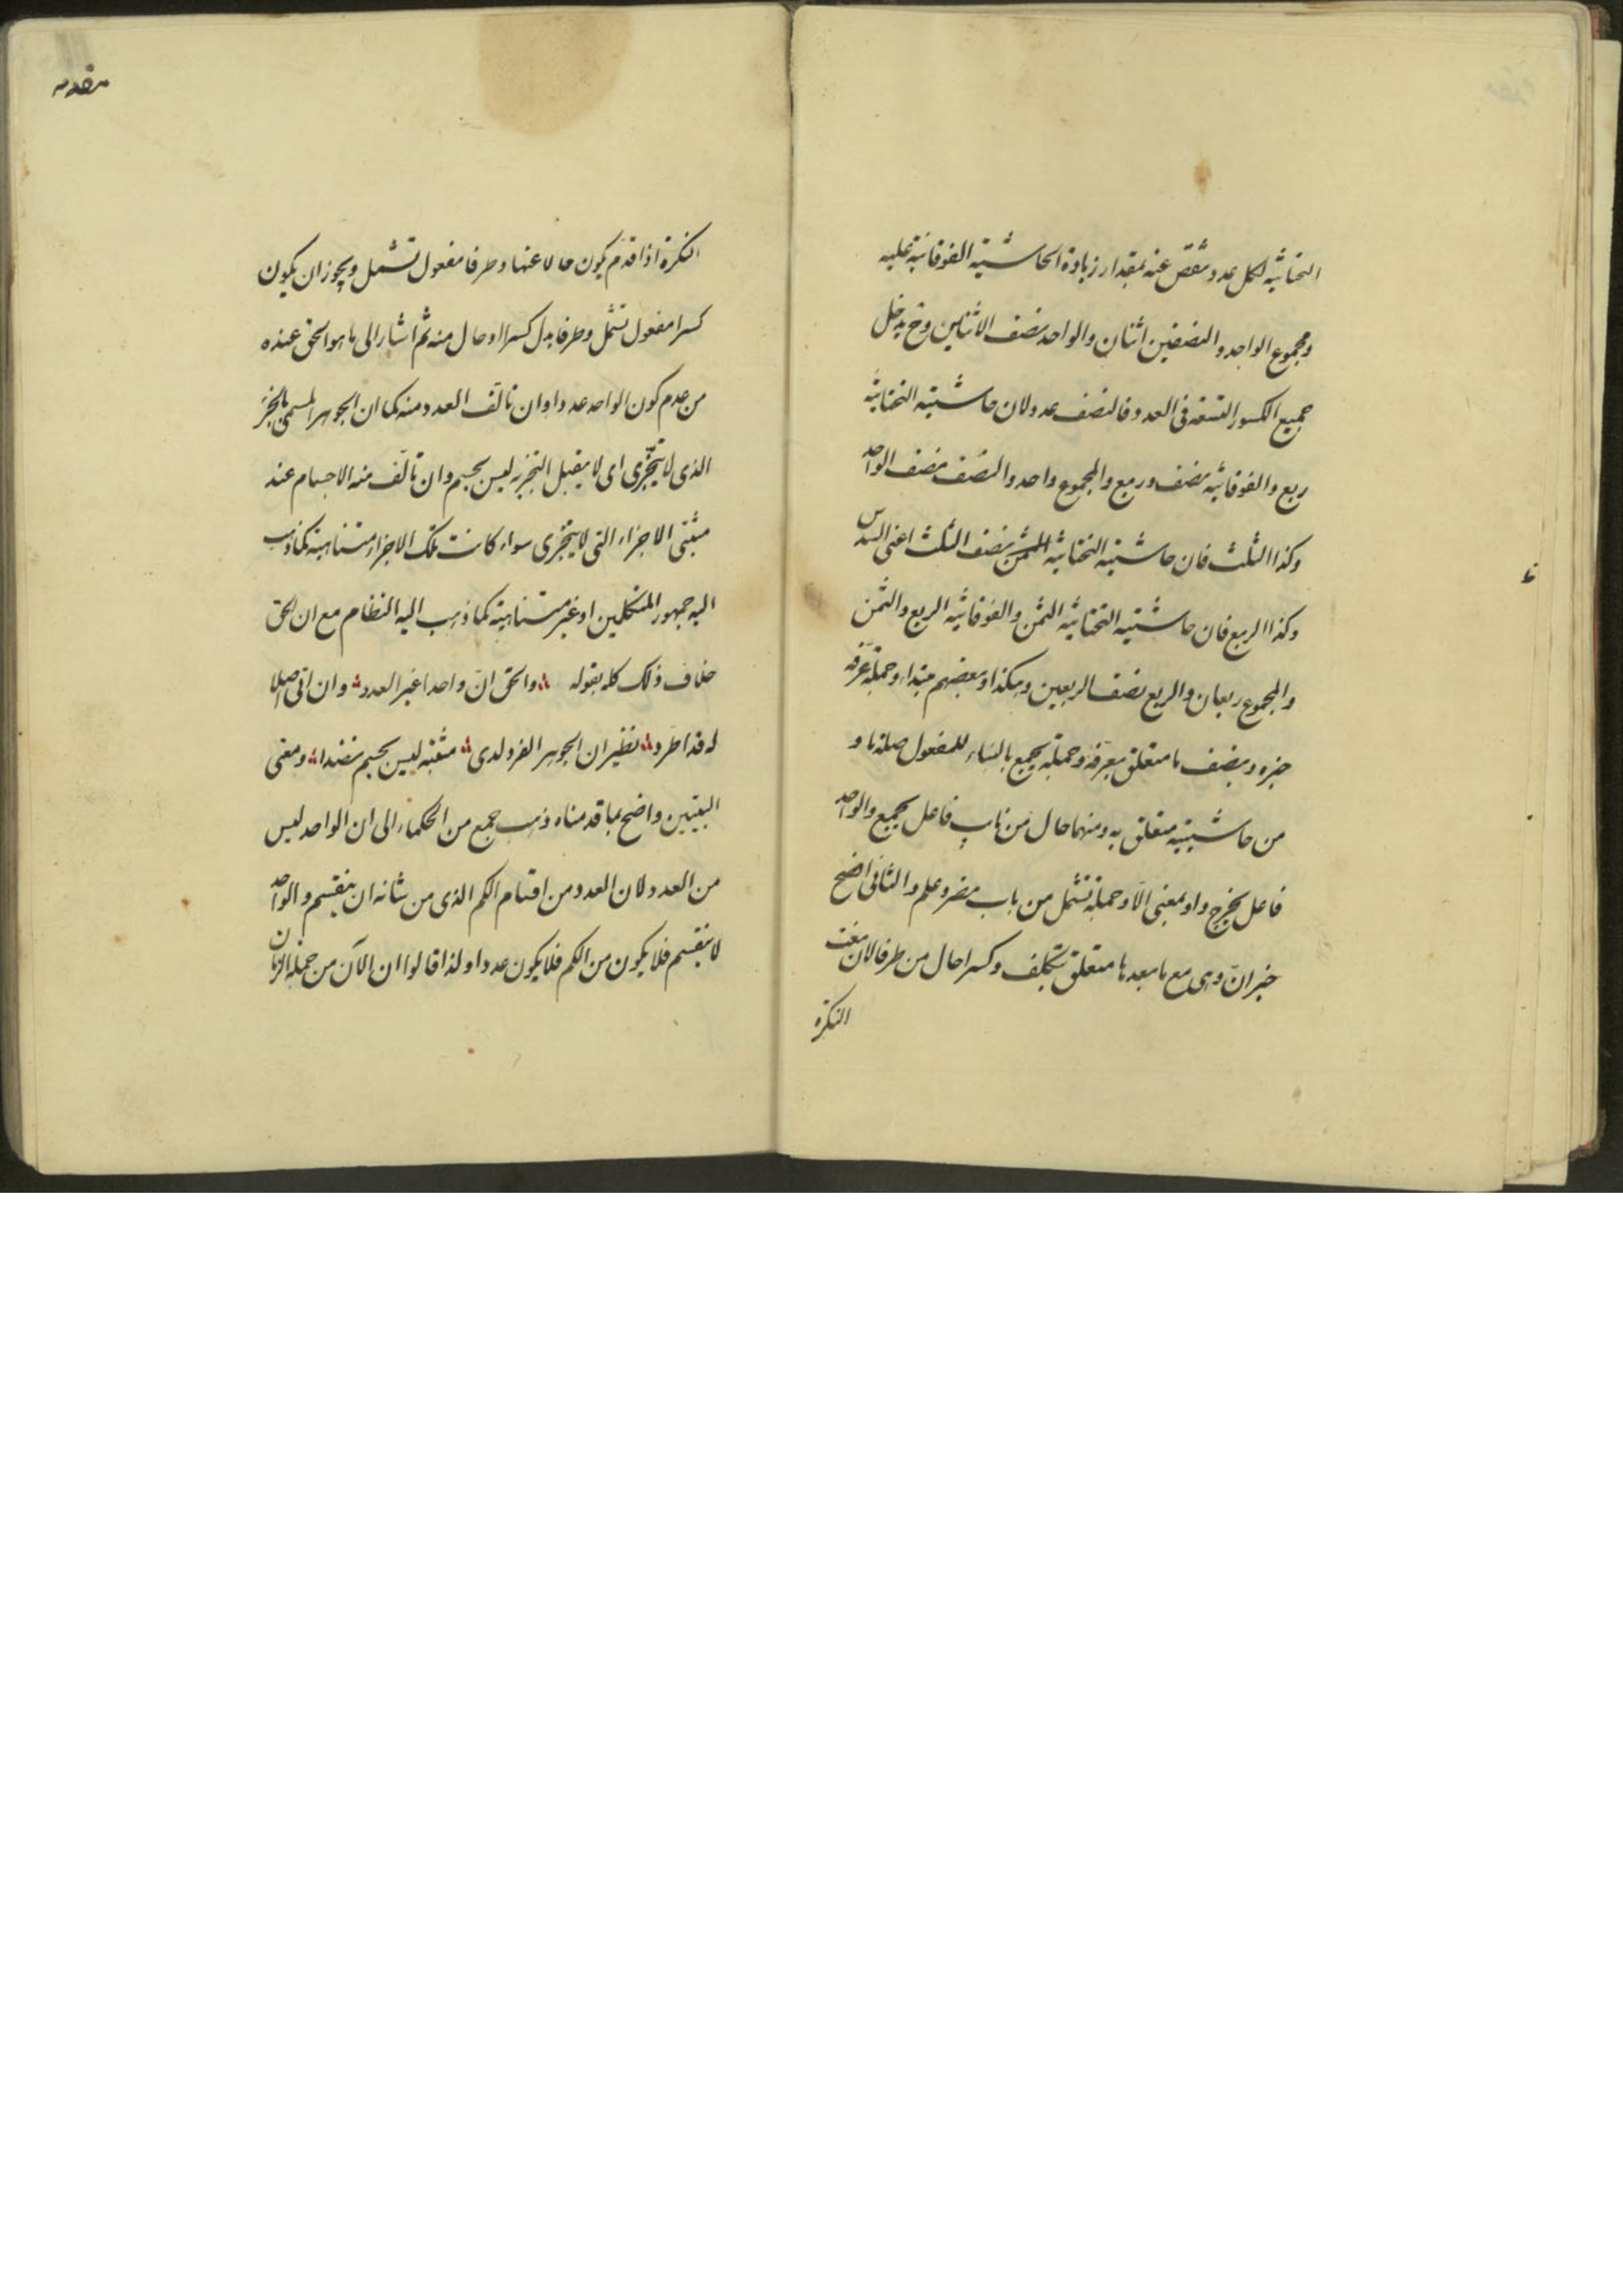 التحتانية لكل عدد تنقص عنه بمقدار زيادة الحاشية الفوقانية عليه
ومجموع الواحد والنصفين اثنان والواحد نصف الاثنين وح يدخل
جميع الكسور التسعة فى العدد فالنصف عدد لان حاشيته التحتانية
ربع والفوقانية نصف وربع والمجموع واحد والنصف نصف الواحد
وكذا الثلث فان حاشيته التحتانية نصف الثلث اعنى السدس
وكذا الربع فان حاشيته التحتانية الثمن والفوقانية الربع والثمن
والمجموع ربعان والربع نصف الربعين وهكذا وبعضهم مبتداء وجملة عرفه
خبره وبنصف ما متعلق بعرفه وجملة يجمع بالبناء للمفعول صلة ما و
من حاشيتيه متعلق به ومنهما حال من نايب فاعل يجمع والواحد
فاعل يخرج واو بمعنى الا وجملة تشمل من باب نصر وعلم والثانى افصح
خبر ان وهى مع ما بعدها متعلق بتكلف وكسرا حال من طرفا لان نعت
النكرة
مقدمه
النكرة اذا قدم يكون حالا عنها وطرفا مفعول تشمل ويجوز ان يكون
كسرا مفعول تشمل وطرفا بدل كسرا او حال منه ثم اشار الى ما هو الحق عنده
من عدم كون الواحد عددا وان تالف العدد منه كما ان الجوهر المسمى بالجزء
الذى لا يتجزى اى لا يقبل التجزيه ليس بجسم وان تالف منه الاجسام عند
مثبتى الاجزاء التى لا يتجزى سواء كانت تلك الاجزاء متناهية كما ذهب
اليه جمهور المتكلمين او غير متناهية كما ذهب اليه النظام مع ان الحق
خلاف ذلك كله بقوله والحق ان واحدا غير العدد وان اتى اصلا
له قد اطرد نظير ان الجوهر الفرد لدى مثبته ليس بجسم نضدا ومعنى
البيتين واضح بما قدمناه ذهب جمع من الحكماء الى ان الواحد ليس
من العدد لان العدد من اقسام الكم الذى من شانه ان ينقسم والواحد
لا ينقسم فلا يكون من الكم فلا يكون عددا ولذا قالوا ان الآن من جملة الزمان